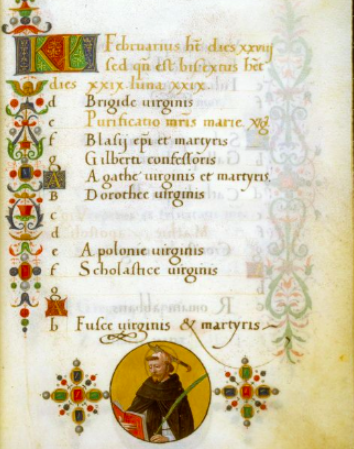 KL Februarius ht dies xxviij
sed qn est bisextus het
dies xxix luna xxix.
d Brigide virginis
e Purificatio mris marie
f Blasij epi et martyris
g Gilberti confessoris
A Agathe virginis et martyris
B Dorothee virginis
c
d
e Apolonie virginis
f Scholastice virginis
g
A
b Fusce virginis & martyris